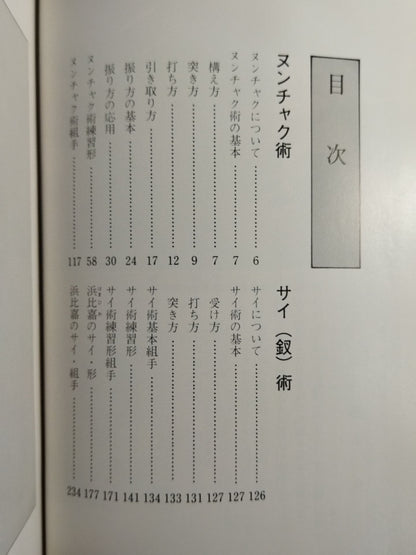 目次
ヌンチャク術
ヌンチャクについて……………………6
ヌンチャク術の基本……………………7
構え方……………………7
突き方……………………9
打ち方……………………12
引き取り方……………………17
振り方の基本……………………24
振り方の応用……………………30
ヌンチャク術練習形……………………58
ヌンチャク術組手……………………117
サイ（釵）術
サイについて……………………126
サイ術の基本……………………127
受け方……………………127
打ち方……………………131
突き方……………………133
サイ術基本組手……………………134
サイ術練習形……………………141
サイ術練習形組手……………………171
浜比嘉のサイ・形……………………177
浜比嘉のサイ・組手……………………234